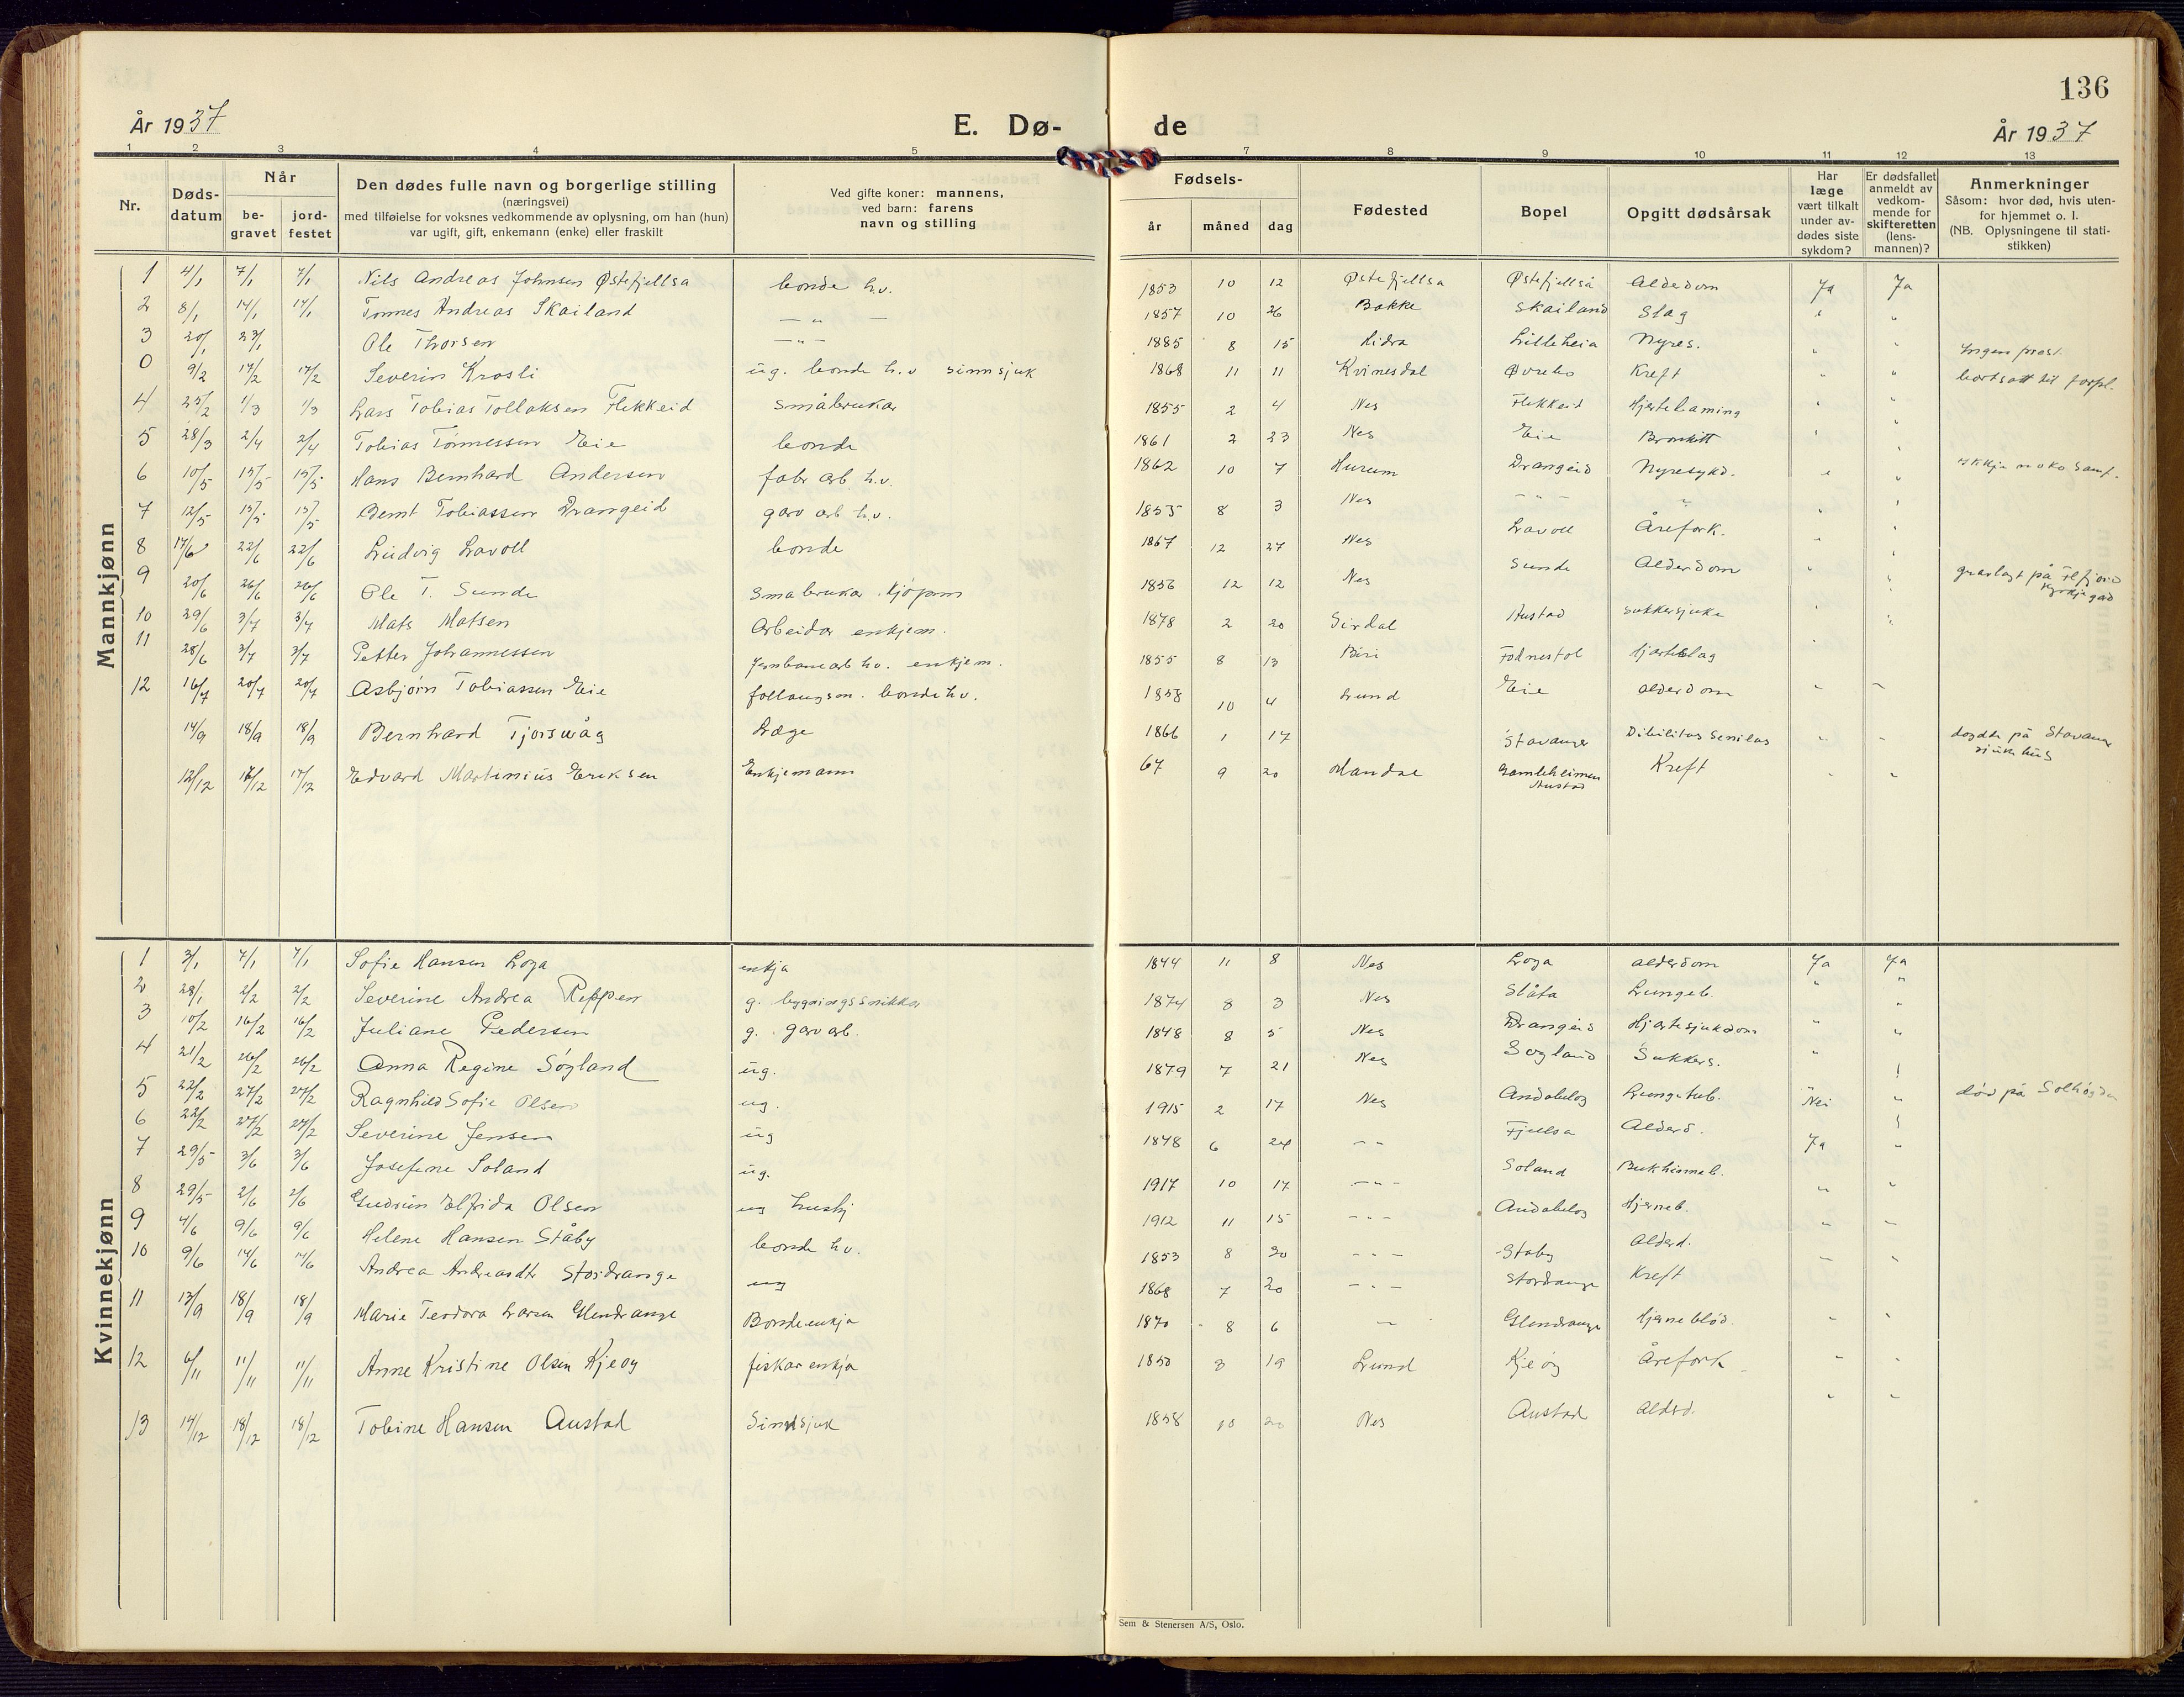 136
År 1937 E. Dø- de År 1937
1 2 3 4 5 7 8 9 10 11 12 13
Nr.
Døds-
datum
Når
be-
gravet
jord-
festet
Den dødes fulle navn og borgerlige stilling
(næringsvei)
med tilføielse for voksnes vedkommende av oplysning, om han (hun)
var ugift, gift, enkemann (enke) eller fraskilt
Ved gifte koner: mannens,
ved barn: farens
navn og stilling
Fødsels-
år måned dag
Fødested
Bopel
Opgitt dødsårsak
Har
læge
vært tilkalt
under av-
dødes siste
sykdom?
Er dødsfallet
anmeldt av
vedkom-
mende for
skifteretten
(lens-
mannen)?
Anmerkninger
Såsom: hvor død, hvis uten-
for hjemmet o. l.
(NB. Oplysningene til stati-
stikken)
Mannkjønn
1 4/1 7/1 7/1 Nils Andreas Johnsen Østefjellsa bonde h.v. 1853 10 12 Østefjellsa Østefjellså Alderdom Ja Ja
2 8/1 14/1 14/1 Tønnes Andreas Skailand — " — 1857 10 26 Bakke Skailand Slag " "
3 20/1 23/1 Ole Thorsen — " — 1885 8 15 Hidra Lilleheia Nyres. " " Ingen prest.
0 9/2 17/2 17/2 Severin Krosli ug. bonde h.v sinnsjuk 1868 11 11 Kvinesdal Øvrebø Kreft " " bortsatt til forpl.
4 25/2 1/3 1/3 Lars Tobias Tollaksen Flekkeid Småbrukar 1855 2 4 Nes Flekkeid Hjertelaming " "
5 28/3 2/4 2/4 Tobias Tønnessen Eie bonde 1861 2 23 Nes Eie Bronkitt " "
6 10/5 15/5 15/5 Hans Bernhard Andersen fabr arb. h.v. 1862 10 7 Hurum Drangeid Nyresykd. " "
7 12/5 15/5 15/5 Bernt Tobiassen Drangeid garv arb h.v. 1855 8 3 Nes — " — " " "
8 17/6 22/6 22/6 Ludvig Lavoll bonde 1867 12 27 Nes Lavoll Årefork. " "
9 20/6 26/6 26/6 Ole T. Sunde Småbrukar kjøpm 1856 12 12 Nes Sunde Alderdom " " gravlagt på Flfjord
kyrkjegard
10 29/6 3/7 3/7 Mats Matsen Arbeidar enkjem. 1878 2 20 Sirdal Austad Sukkersjuke " "
11 28/6 3/7 3/7 Petter Johannessen Jernbanearb h.v. enkjem. 1855 8 13 Biri Fodnestøl Hjarteslag " "
12 16/7 20/7 20/7 Asbjørn Tobiassen Eie follaugsm. bonde h.v. 1858 10 4 Lund Eie alderdom " "
14/9 18/9 18/9 Bernhard Tjorsvåg Læge 1866 1 17 Stavanger Dibilitas Senilas " " døydde på Stavanger
sjukehus
12/12 17/12 17/12 Edvard Martinius Eriksen Enkjemann 67 9 20 Mandal Gamleheimen
Austad Kreft " "
Kvinnekjønn
1 3/1 7/1 7/1 Sofie Hansen Loga enkja 1844 11 8 Nes Loga alderdom Ja Ja
2 28/1 2/2 2/2 Severine Andrea Reppen g. bygningssnikkar 1874 8 3 Nes Slåta Lungeb. " "
3 10/2 16/2 16/2 Juliane Pedersen g. garvarb. 1848 8 5 Nes Drangeid Hjertesjukdom " "
4 21/2 26/2 26/2 Anna Regine Søyland ug. 1879 7 21 Nes Søyland Sukkers. " "
5 22/2 27/2 27/2 Ragnhild Sofie Olsen ug. 1915 2 17 Nes Andabeløy Lungetub. Nei " død på Solhøgda
6 22/2 27/2 27/2 Severine Jensen ug 1848 6 24 — — Fjellsa Alderd. Ja "
7 29/5 3/6 3/6 Josefine Soland ug. 1917 10 17 — " — Soland Bukhinneb. " "
8 29/5 2/6 2/6 Gudrun Elfrida Olsen ug huskj 1912 11 15 — " — Andabeløy Hjerneb. " "
9 4/6 9/6 9/6 Helene Hansen Ståby bonde h.v. 1853 8 20 — " — Ståby Alderd. " "
10 9/6 14/6 14/6 Andrea Andreasdtr Stordrange ug 1868 7 20 — " — Stordrange Kreft " "
11 13/9 18/9 18/9 Marie Teodora Larsen Glendrange Bondeenkja 1870 8 6 — Glendrange Hjerneblød. " "
12 6/11 11/11 11/11 Anne Kristine Olsen Kjeøy fiskarenkja 1850 8 19 Lund Kjeøy Årefork " "
13 14/12 18/12 18/12 Tobine Hansen Austad Sinnsjuk 1858 10 20 Nes Austad Alderd. " "
Sem & Stenersen A/S, Oslo.